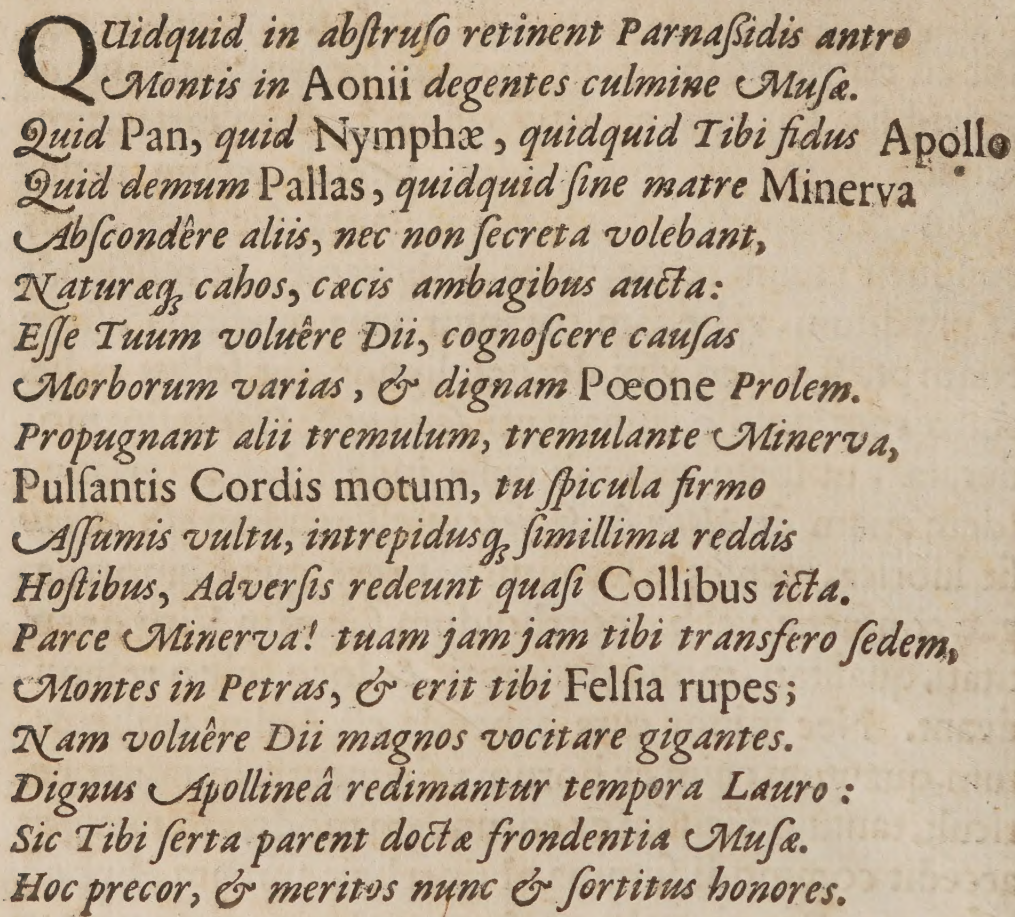 QUidquid in abſtruſo retinent Parnaſſidis antro
Montis in Aonii degentes culmine Muſæ.
Quid Pan, quid Nymphæ, quidquid Tibi fidus Apollo
Quid demum Pallas, quidquid ſine matre Minerva
Abſcondêre aliis, nec non ſecreta volebant,
Naturæq; cahos, cæcis ambagibus aucta:
Eſſe Tuum voluêre Dii, cognoſcere cauſas
Morborum varias, & dignam Pœone Prolem.
Propugnant alii tremulum, tremulante Minerva,
Pulſantis Cordis motum, tu ſpicula firmo
Aſſumis vultu, intrepidusq; ſimillima reddis
Hoſtibus, Adverſis redeunt quaſi Collibus icta.
Parce Minerva! tuam jam jam tibi transfero ſedem,
Montes in Petras, & erit tibi Felſia rupes;
Nam voluêre Dii magnos vocitare gigantes.
Dignus Apollineâ redimantur tempora Lauro:
Sic Tibi ſerta parent doctæ frondentia Muſæ.
Hoc precor, & meritos nunc & ſortitus honores.